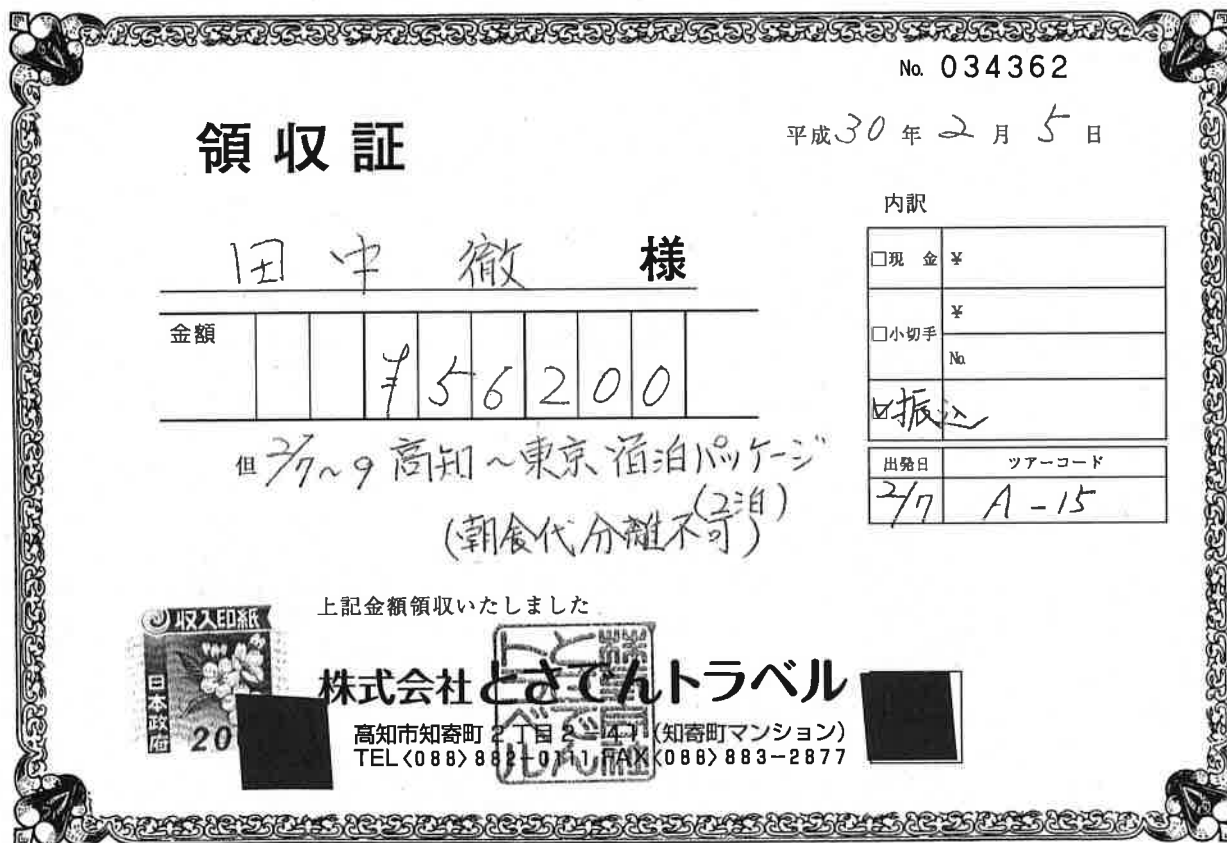 No. 034362
領収証
平成30年2月5日
田中徹 様
金額 ¥56200
但 2/7~9 高知~東京 宿泊パッケージ
(2泊)
(朝食代分離不可)
内訳
□現金 ¥
□小切手 ¥
No.
☑振込
出発日 ツアーコード
2/7 A-15
上記金額領収いたしました
収入印紙
日本政府
20
株式会社とさでんトラベル
高知市知寄町2丁目2-41(知寄町マンション)
TEL<088>882-0111 FAX<088>883-2877